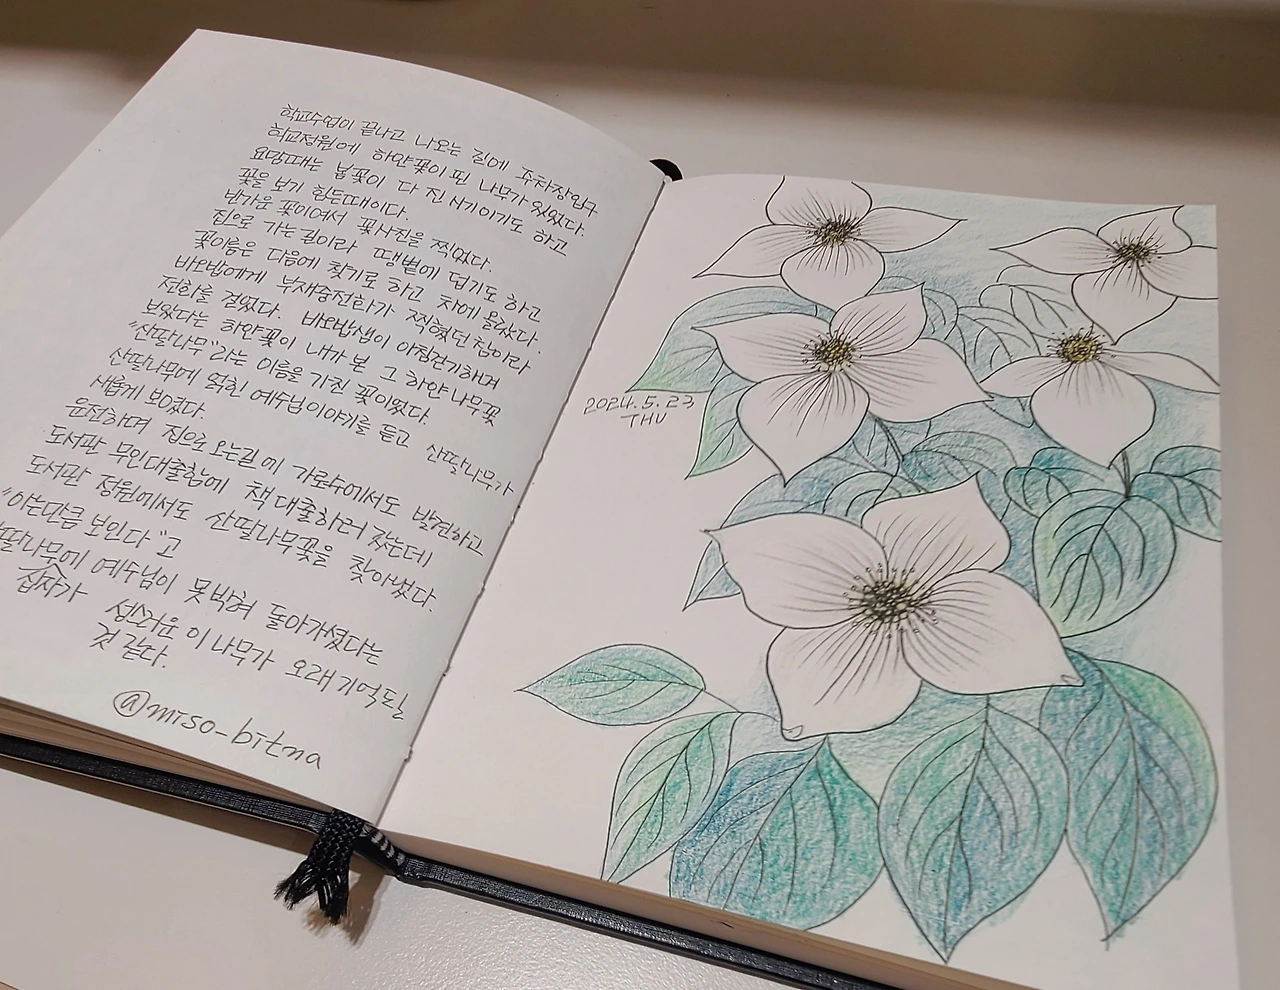 학교수업이 끝나고 나오는 길에 주차장입구
학교정원에 하얀꽃이 핀 나무가 있었다.
요맘때는 봄꽃이 다 진 시기이기도 하고
꽃을 보기 힘든때이다.
반가운 꽃이여서 꽃사진을 찍었다.
집으로 가는길이라 땡볕에 덥기도 하고
꽃이름은 다음에 찾기로 하고 차에 올랐다.
바오밥에게 부재중전화가 찍혔던 참이라
전화를 걸었다. 바오밥샘이 아침걷기하며
보았다는 하얀꽃이 내가 본 그 하얀 나무꽃
"산딸나무"라는 이름을 가진 꽃이였다.
산딸나무에 얽힌 예수님이야기를 듣고 산딸나무가
새롭게 보였다.
운전하며 집으로 오는길에 가로수에서도 발견하고
도서관 무인대출함에 책대출하러 갔는데
도서관 정원에서도 산딸나무꽃을 찾아냈다.
"아는만큼 보인다"고
딸나무에 예수님이 못박혀 돌아가셨다는
십자가 성스러운 이 나무가 오래 기억될
것 같다.
@miso_bitna
2024.5.23
THU